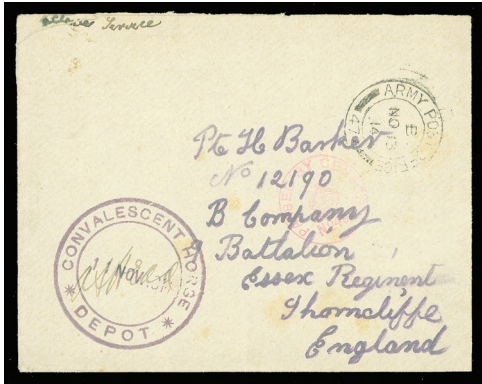 Active Service
ARMY POST OFFICE
E
NO 13
14
47
Pte H Barker
No 12190
B Company
9 Battalion
Essex Regiment
Shorncliffe
England
CONVALESCENT HORSE
11 NOV
* DEPOT *